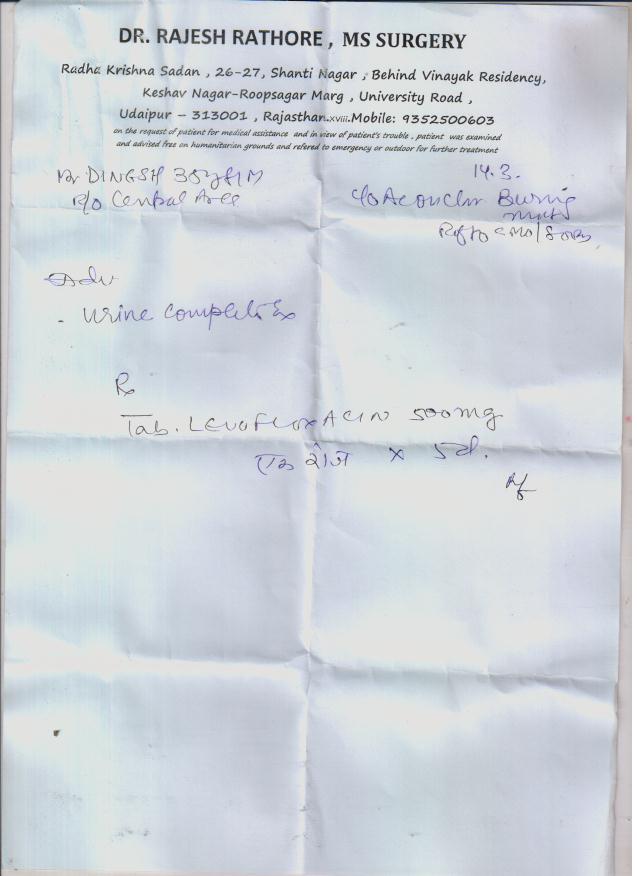 DR. RAJESH RATHORE , MS SURGERY
Radha Krishna Sadan , 26-27, Shanti Nagar , Behind Vinayak Residency,
Keshav Nagar-Roopsagar Marg , University Road ,
Udaipur – 313001 , Rajasthan.xviii.Mobile: 9352500603
on the request of patient for medical assistance and in view of patient's trouble , patient was examined
and advised free on humanitarian grounds and refered to emergency or outdoor for further treatment
14.3.
DINGSH 35y/M
R/o Central Area
C/o Burning
Adv
- Urine complete Ex
Rx
Tab. LEVOFLOXACIN 500mg
एक रोज x 5d.